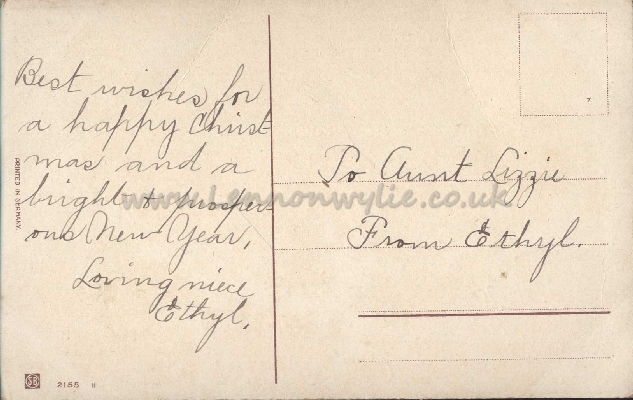 Best wishes for
a happy Christ
mas and a
bright & prosper
ous New Year,
Loving niece
Ethyl.
To Aunt Lizzie
From Ethyl.
www.Lennonwylie.co.uk
PRINTED IN GERMANY.
2155 II
7